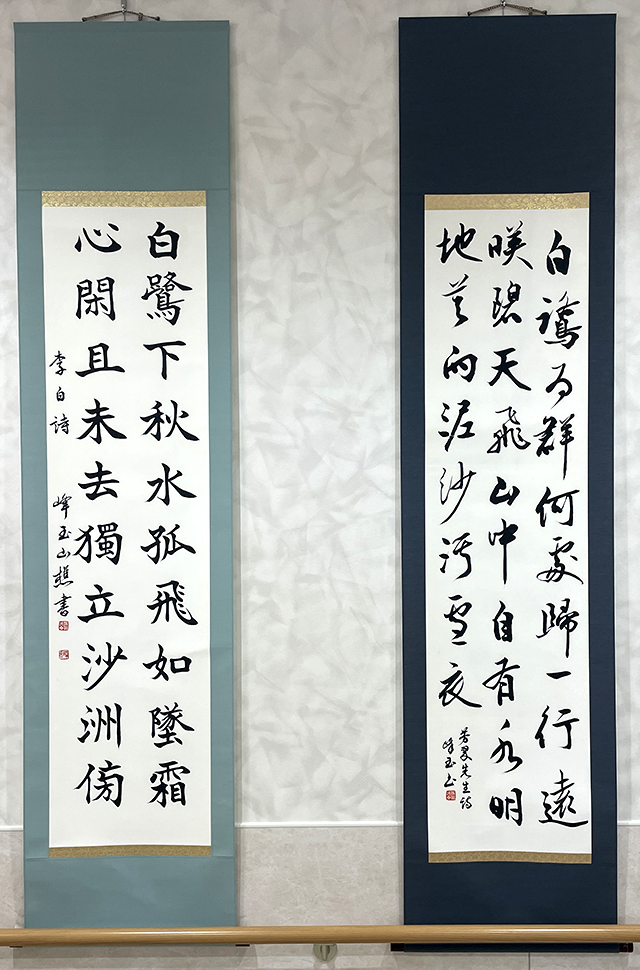 白鷺为群何處歸一行遠
映碧天飛山中自有水明
地莫向泥沙汚雪衣
先生詩
峰玉
白鷺下秋水孤飛如墜霜
心閑且未去獨立沙洲傍
李白詩 峰玉山樵書